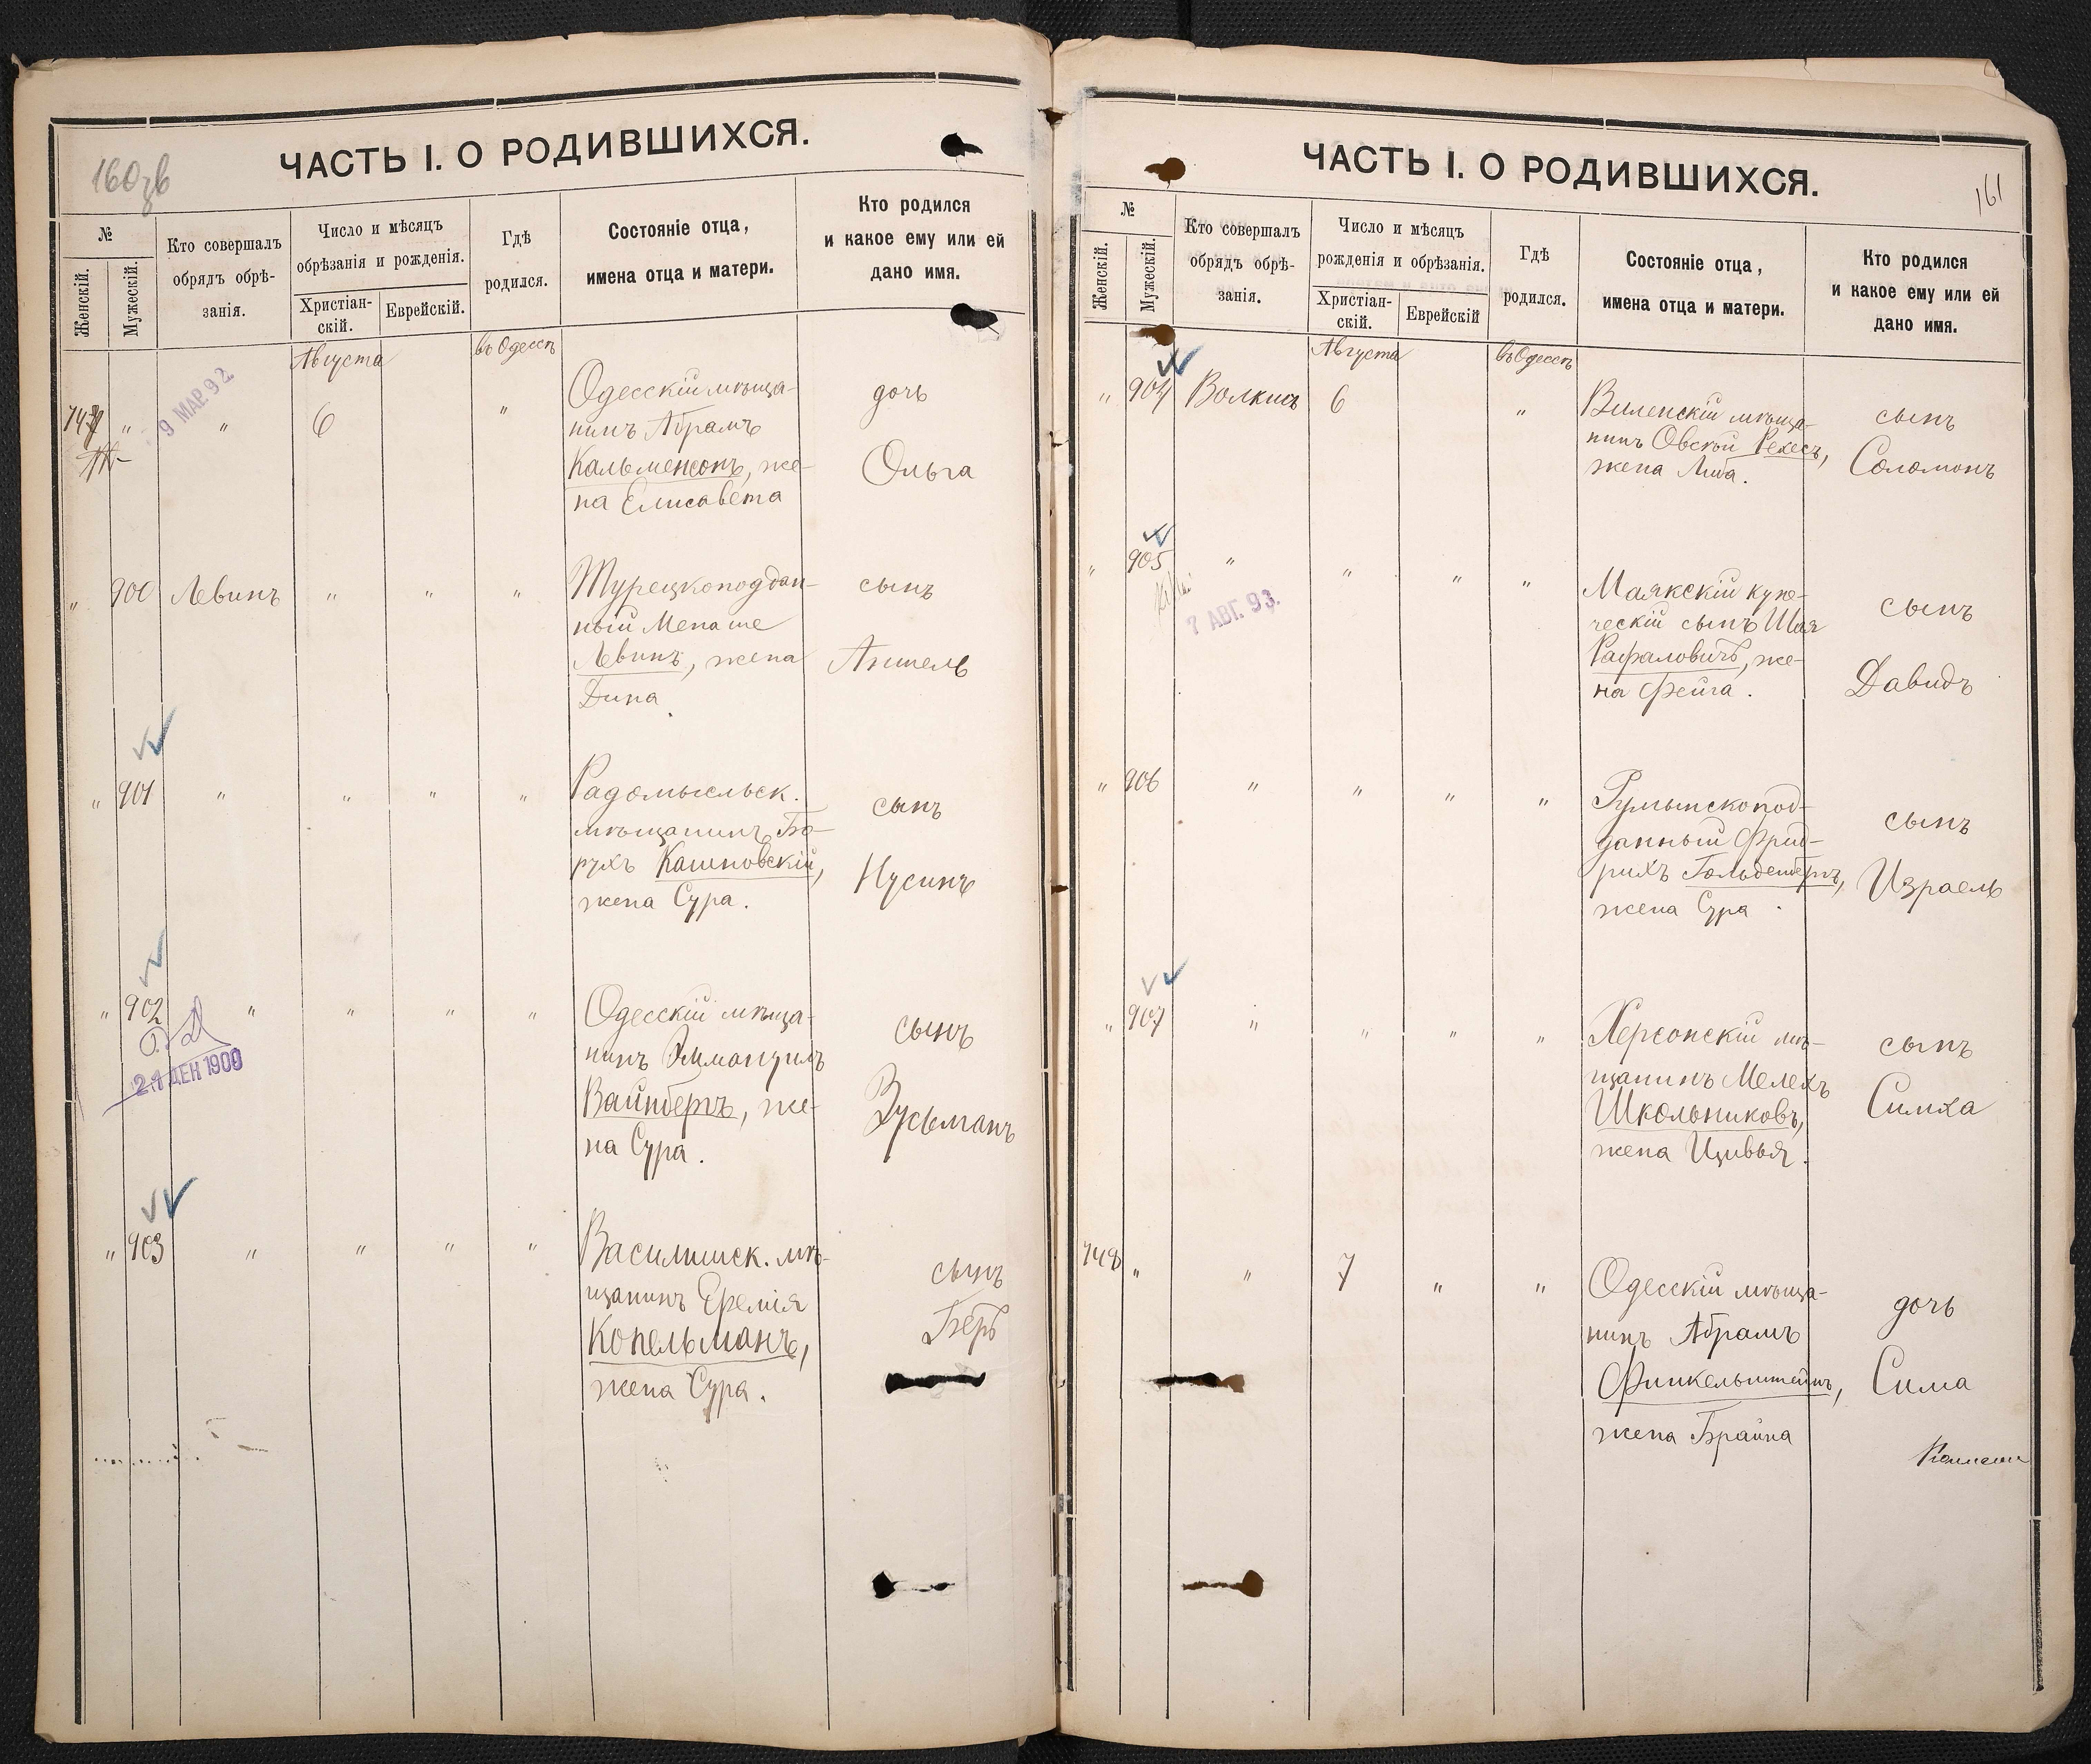 160зв
ЧАСТЬ I. О РОДИВШИХСЯ.
№
Женскій.
Мужескій.
Кто совершалъ
обрядъ обрѣ-
занія.
Число и мѣсяцъ
обрѣзанія и рожденія.
Христіан-
скій.
Еврейскій.
Гдѣ
родился.
Состояніе отца,
имена отца и матери.
Кто родился
и какое ему или ей
дано имя.
Августа
въ Одессѣ
9 МАР. 92.
747 " " 6 "
Одесскій мѣща-
нинъ Абрамъ
Кальменсонъ, же-
на Елисавета
дочь
Ольга
" 900 Левинъ " " "
Турецкоподдан-
ный Менаше
Левинъ, жена
Дина.
сынъ
Аншель
" 901 " " " "
Радомысльск.
мѣщанинъ Бо-
рухъ Кашновскій,
жена Сура.
сынъ
Нусинъ
" 902 " " " "
21 ДЕК 1900
Одесскій мѣща-
нинъ Эммануилъ
Вайнбергъ, же-
на Сура.
сынъ
Зусьманъ
" 903 " " " "
Василишск. мѣ-
щанинъ Еремія
Копельманъ,
жена Сура.
сынъ
Беръ
161
ЧАСТЬ I. О РОДИВШИХСЯ.
№
Женскій.
Мужескій.
Кто совершалъ
обрядъ обрѣ-
занія.
Число и мѣсяцъ
рожденія и обрѣзанія.
Христіан-
скій.
Еврейскій
Гдѣ
родился.
Состояніе отца,
имена отца и матери.
Кто родился
и какое ему или ей
дано имя.
Августа
въ Одессѣ
" 904 Волкисъ 6 "
Виленскій мѣща-
нинъ Овсей Рехесъ,
жена Либа.
сынъ
Соломонъ
" 905 " " " "
7 АВГ. 93.
Маякскій купе-
ческій сынъ Шая
Рафаловичъ, же-
на Фейга.
сынъ
Давидъ
" 906 " " " "
Румынскопод-
данный Фрид-
рихъ Гольденбергъ,
жена Сура.
сынъ
Израель
" 907 " " " "
Херсонскій мѣ-
щанинъ Мелехъ
Школьниковъ,
жена Цивья.
сынъ
Симха
748 " " 7 " "
Одесскій мѣща-
нинъ Абрамъ
Финкельштейнъ,
жена Брайна
дочь
Сима